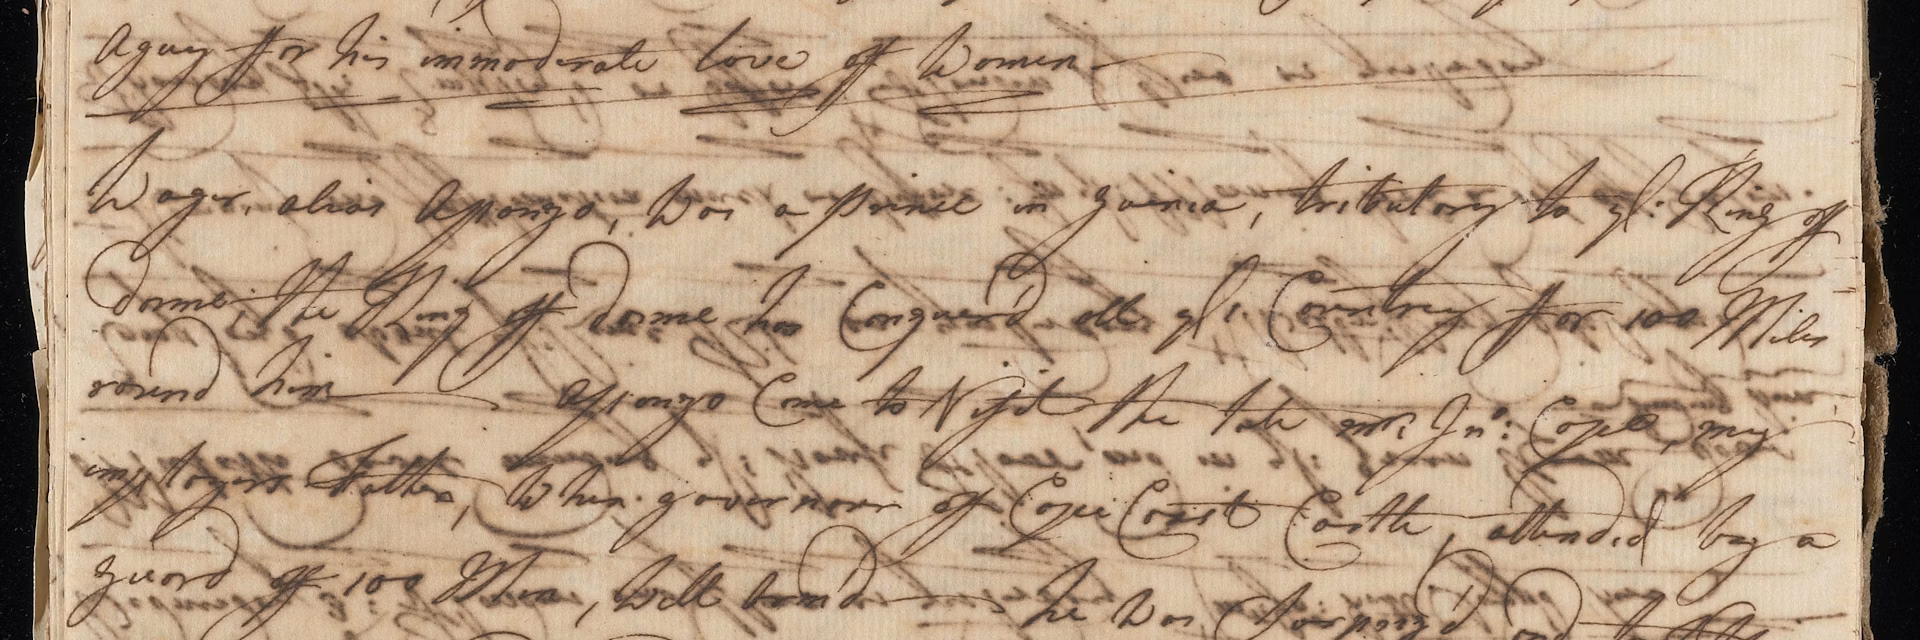 Aguy for his immoderate Love off Women
Wager, alias Apongo, was a Prince in guinea, tributary to ye: King off
dome the King off dome has Conquerd all ye: Countrey For 100 Miles
round him Apongo Came to Visit the late mr: Jno: Cope, my
imployers Father, when governour off Cape Coast Castle, attended by a
guard off 100 Men, well armd he was Surprizd and